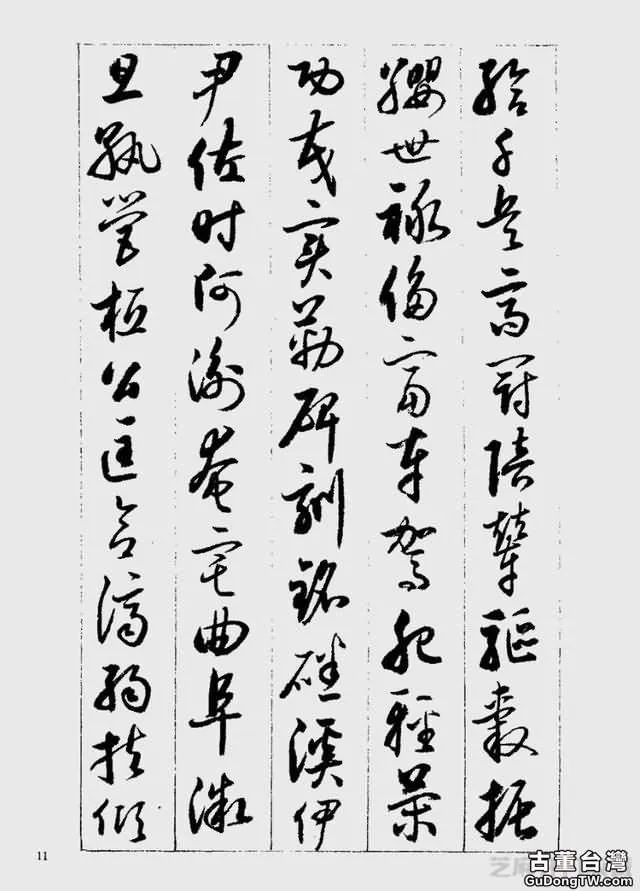 給千兵高冠陪輦驅轂振
纓世祿侈富車駕肥輕策
功茂實勒碑刻銘磻溪伊
尹佐時阿衡奄宅曲阜微
旦孰營桓公匡合濟弱扶傾
11
古董台灣
GuDongTW.com